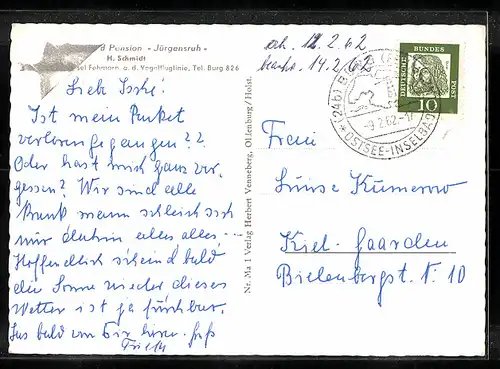 Pension - Jürgensruh -
H. Schmidt
Insel Fehmarn, a. d. Vogelfluglinie, Tel. Burg 826
erh. 12.2.62
beantw. 14.2.62
DEUTSCHE BUNDESPOST
10
(24b) BURG
-9.2.62.-17
OSTSEE-INSELBAD
Liebe
Ist mein Paket
verlorengegangen??
Oder hast mich ganz ver-
gessen? Wir sind alle
krank man schleich sich
nur dahin alles alles...
Hoffendlich scheind bald
die Sonne wieder dieses
Wetter ist ja furchbar.
Las bald von Dir hören. Gruß
Nr. Ma 1 Verlag Herbert Venneberg, Oldenburg/Holst.
Frau
Luise Kumerow
Kiel-Gaarden
Bielenbergst. N. 10